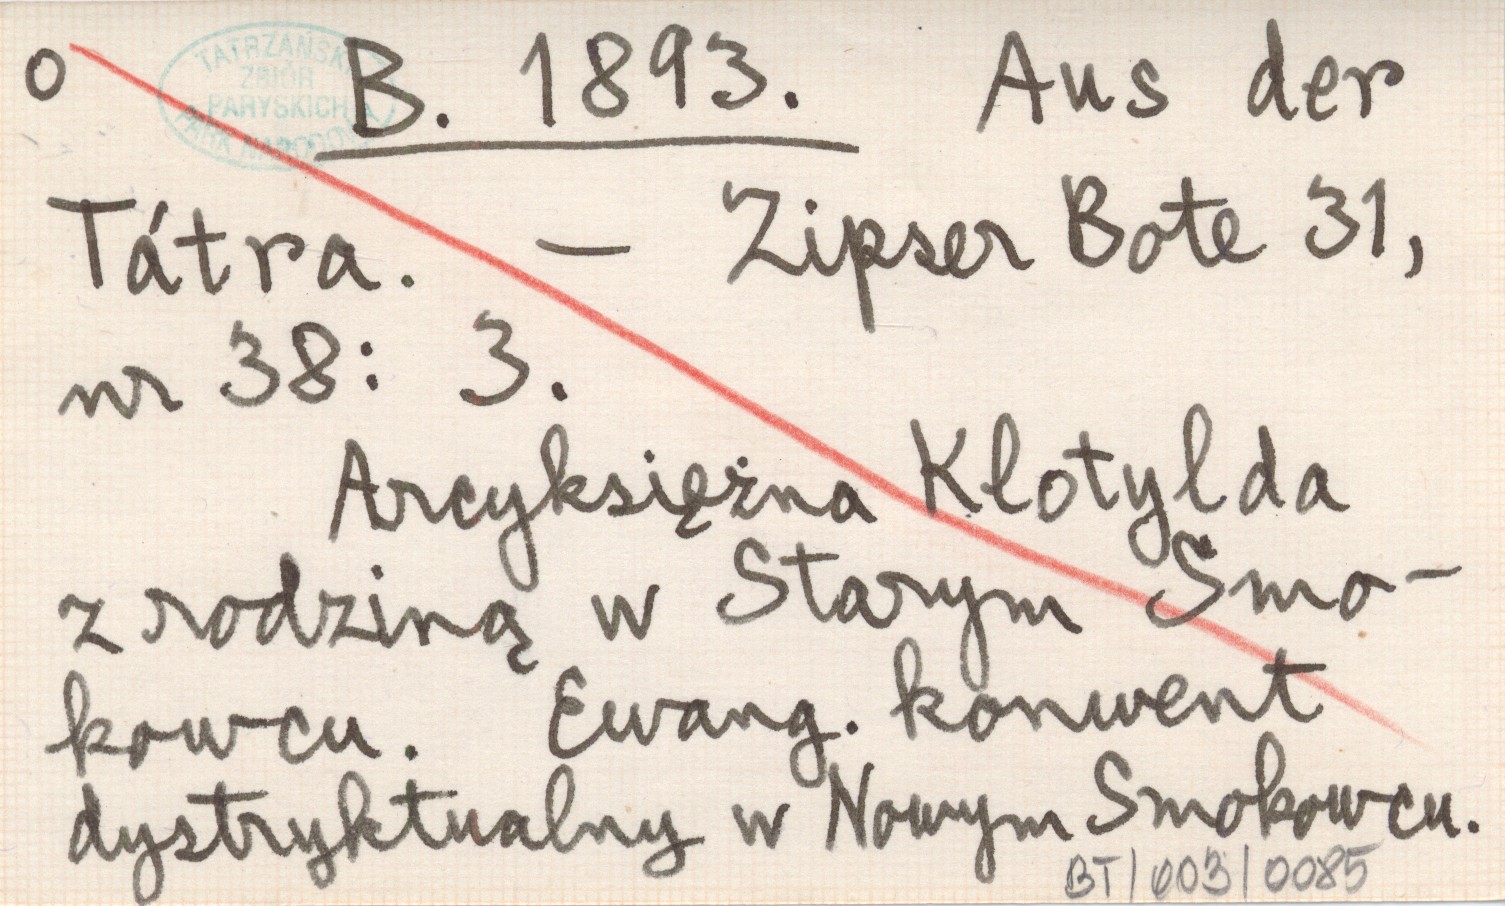 o B. 1893. Aus der
TATRZAŃSKI
ZBIÓR
PARYSKICH
PARK NARODOWY
Tátra. — Zipser Bote 31,
nr 38: 3.
Arcyksiężna Klotylda
z rodziną w Starym Smo-
kowcu. Ewang. konwent
dystryktualny w Nowym Smokowcu.
BT/003/0085